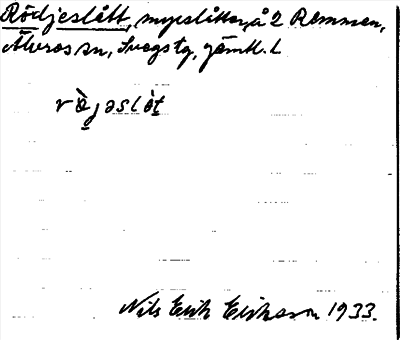 Rödjeslått, myrslåtter, å 2 Remmen,
Älvros sn, Svegs tg, Jämtl. L
Nils Erik Eriksson 1933.